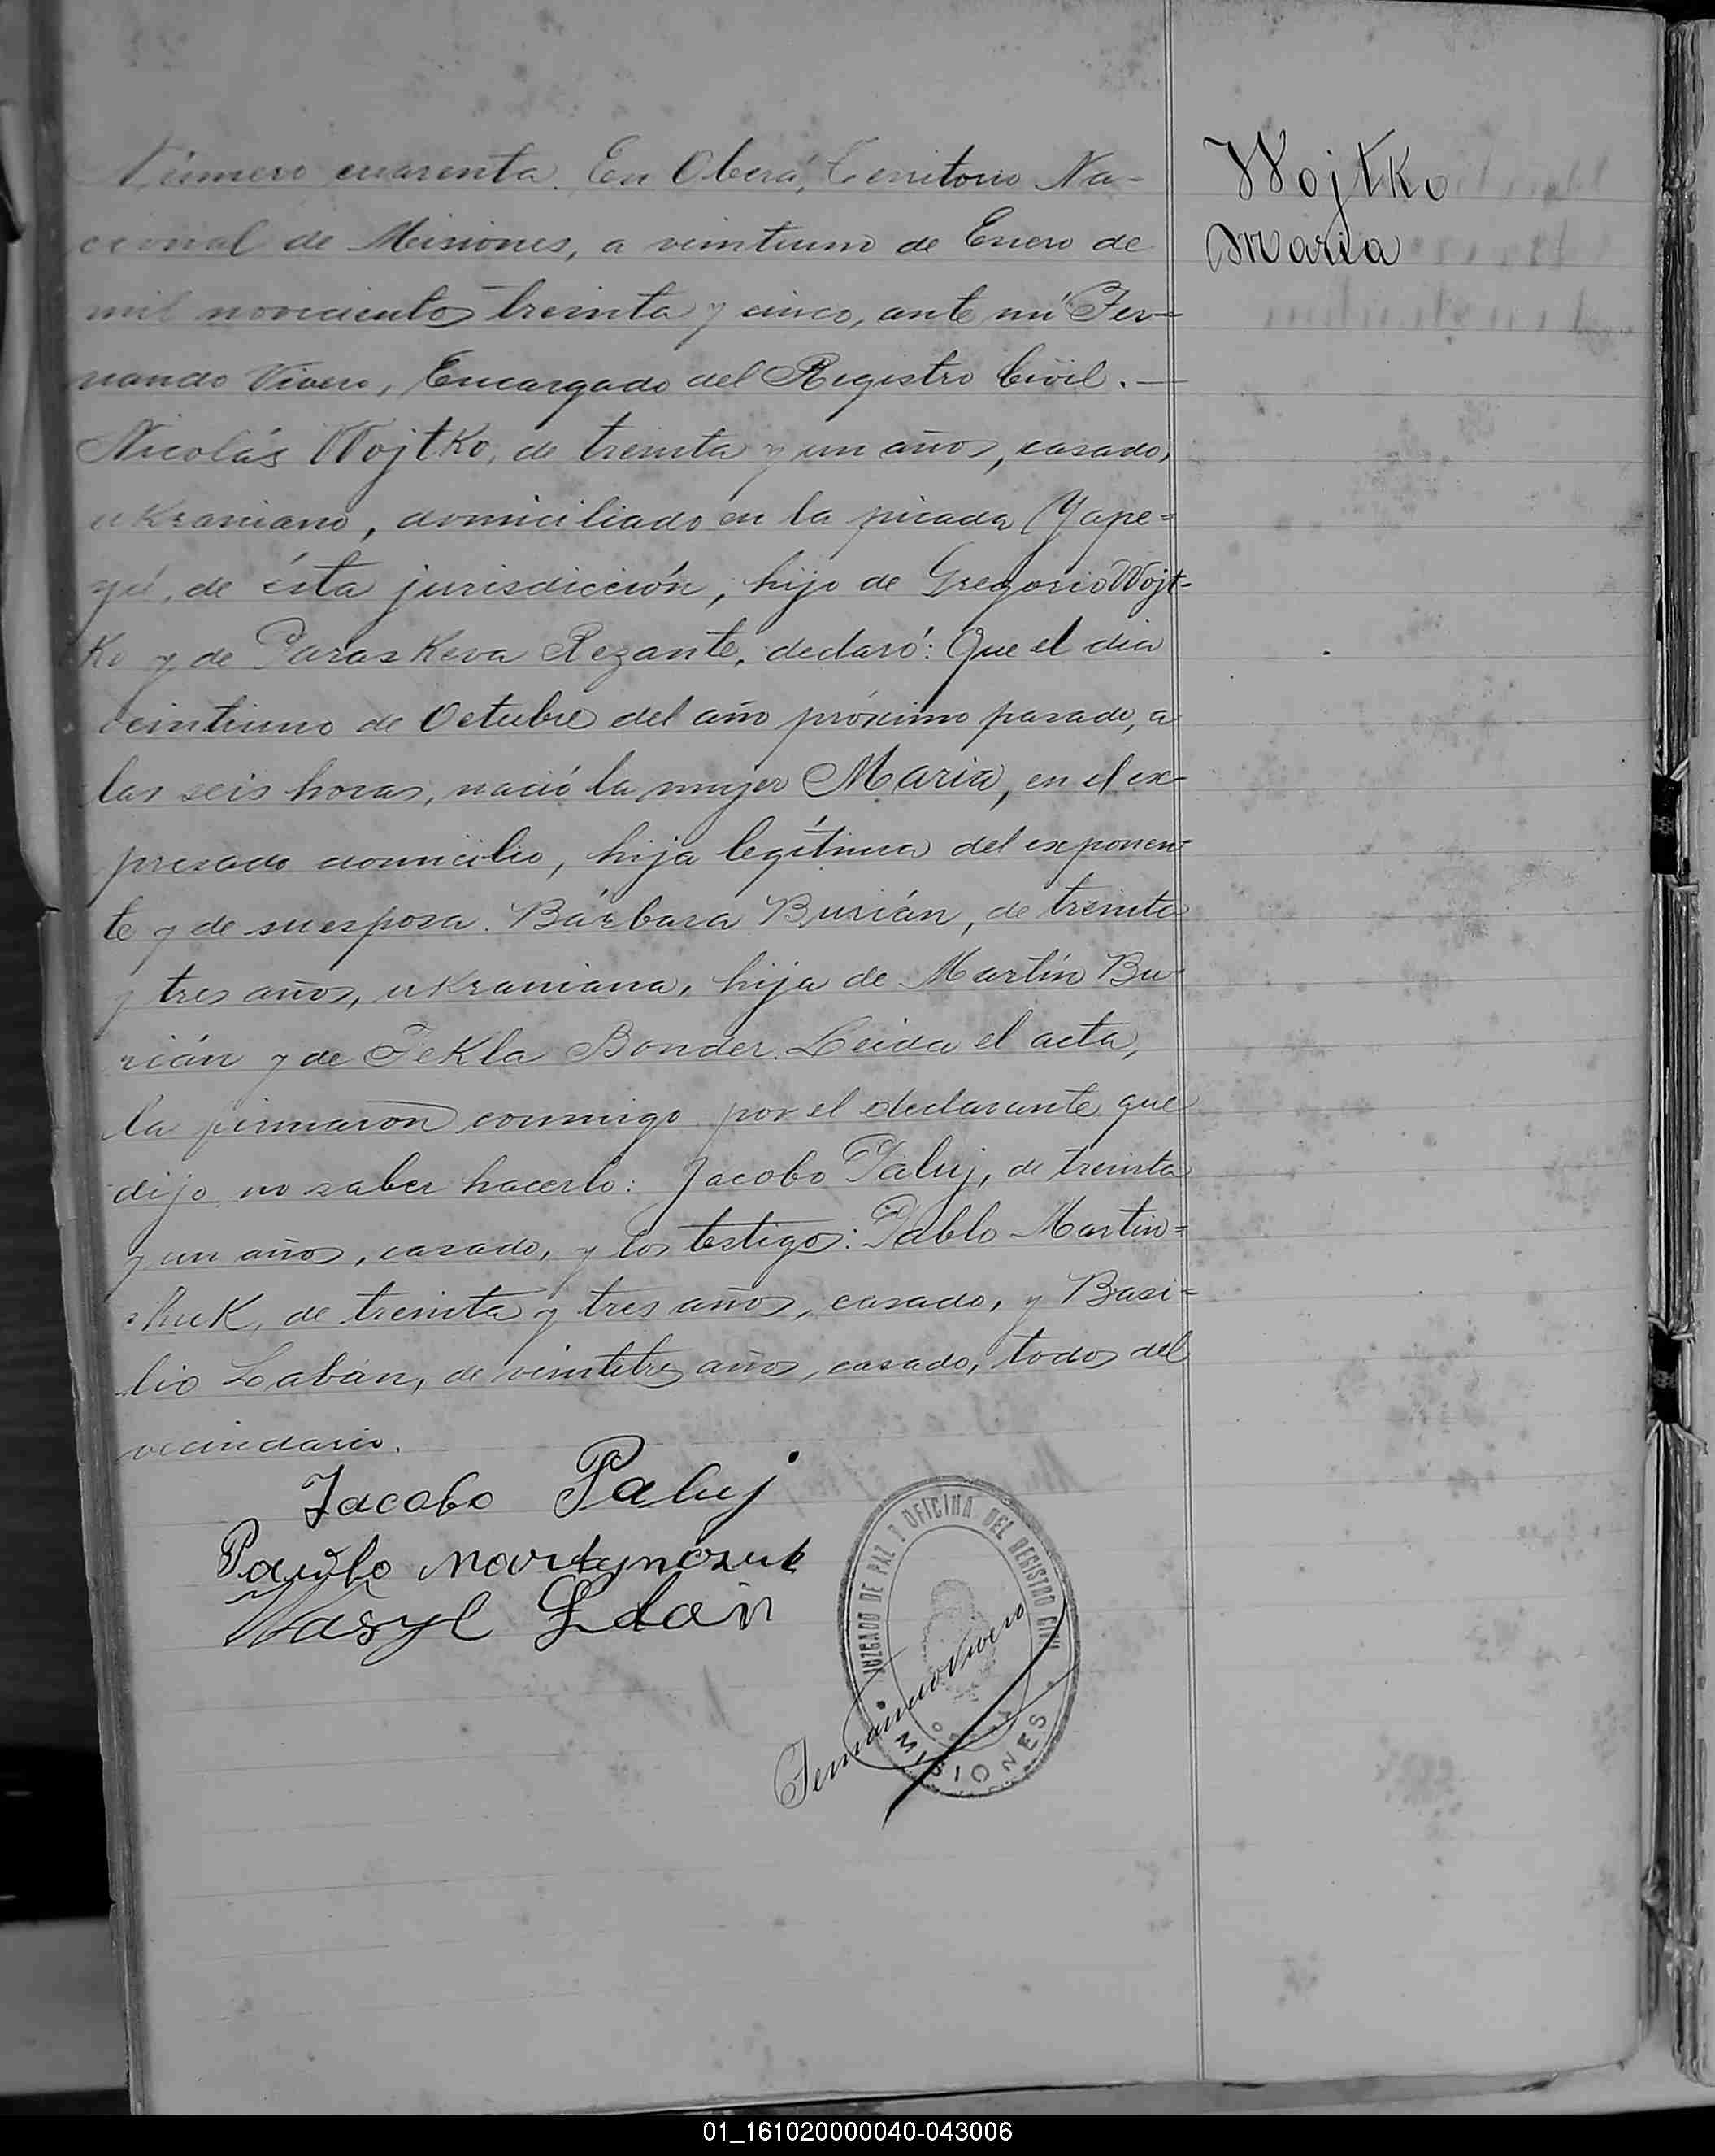 Número cuarenta. En Oberá, Territorio Na-
cional de Misiones, a veintiuno de Enero de
mil novecientos treinta y cinco, ante mí Fer-
nando Vivero, Encargado del Registro Civil. —
Nicolás Wojtko, de treinta y un años, casado,
ukraniano, domiciliado en la picada Yape=
yú, de ésta jurisdicción, hijo de Gregorio Wojt-
ko y de Paraskeva Rezante, declaró: Que el día
veintiuno de Octubre del año próximo pasado, a
las seis horas, nació la mujer Maria, en el ex-
presado domicilio, hija legítima del exponen-
te y de su esposa Bárbara Burián, de treinta
y tres años, ukraniana, hija de Martín Bu-
rián y de Tekla Bonder. Leida el acta,
la firmaron conmigo por el declarante que
dijo no saber hacerlo: Jacobo Paluj, de treinta
y un años, casado, y los testigos: Pablo Martin=
chuk, de treinta y tres años, casado, y Basi=
lio Labán, de veintitres años, casado, todos del
vecindario.
Jacobo Paluj
Pawlo Martynczuk
Wasyl
JUZGADO DE PAZ Y OFICINA DEL REGISTRO CIVIL
MISIONES
Fernando Vivero
Wojtko
Maria
01_161020000040-043006